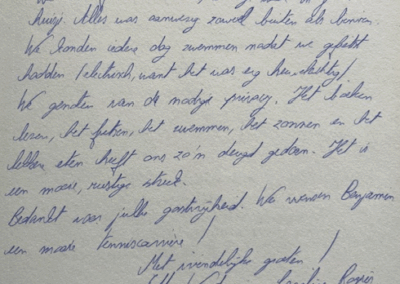 huisje. Alles was aanwezig zowel buiten als binnen.
We konden iedere dag zwemmen nadat we gefietst
hadden (electrisch, want het was erg heuvelachtig)!
We genoten van de nodige privacy. Het boeken
lezen, het fietsen, het zwemmen, het zonnen en het
lekker eten heeft ons zo'n deugd gedaan. Het is
een mooie, rustige streek.
Bedankt voor jullie gastvrijheid. We wensen Benjamin
een mooie tenniscarrière!
Met vriendelijke groeten!